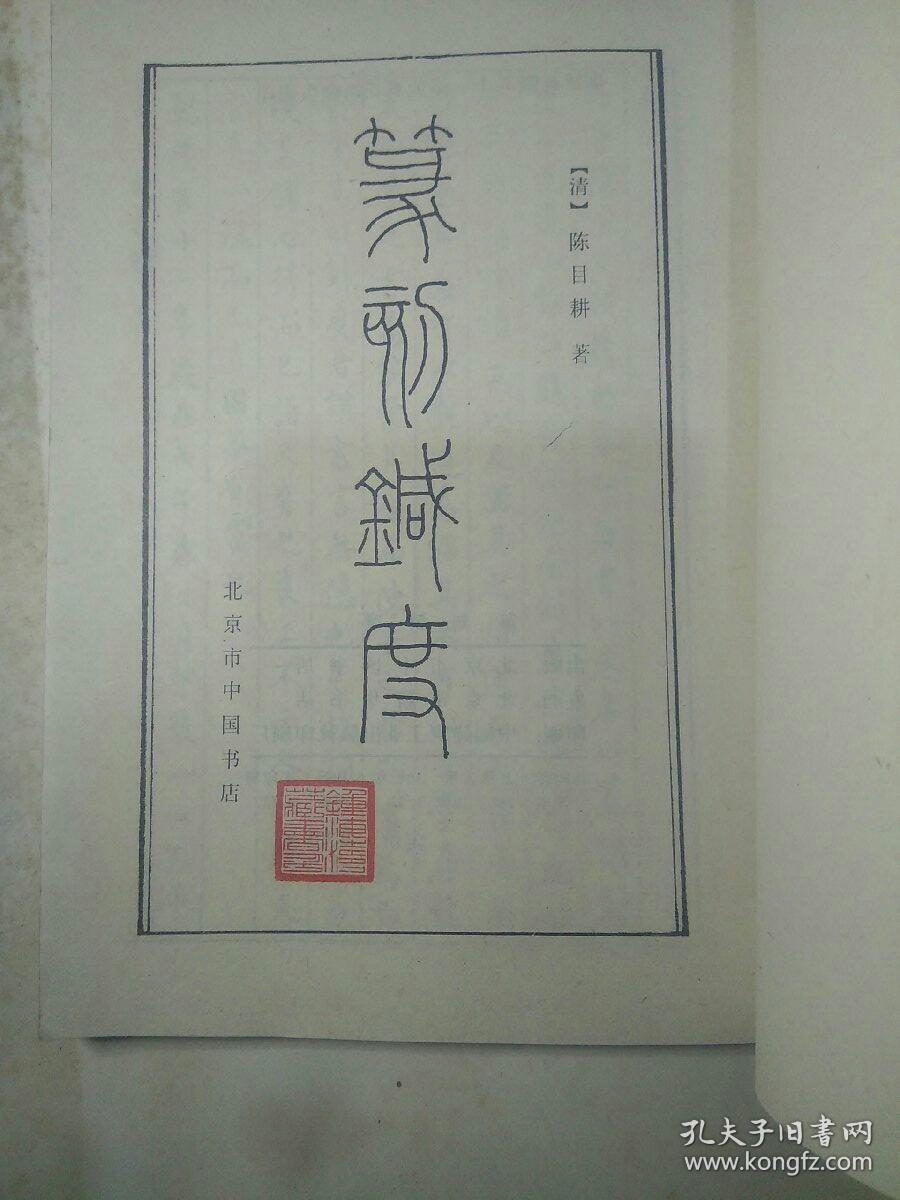 【清】陈目耕 著
篆刻鍼度
北京市中国书店
孔夫子旧书网
www.kongfz.com